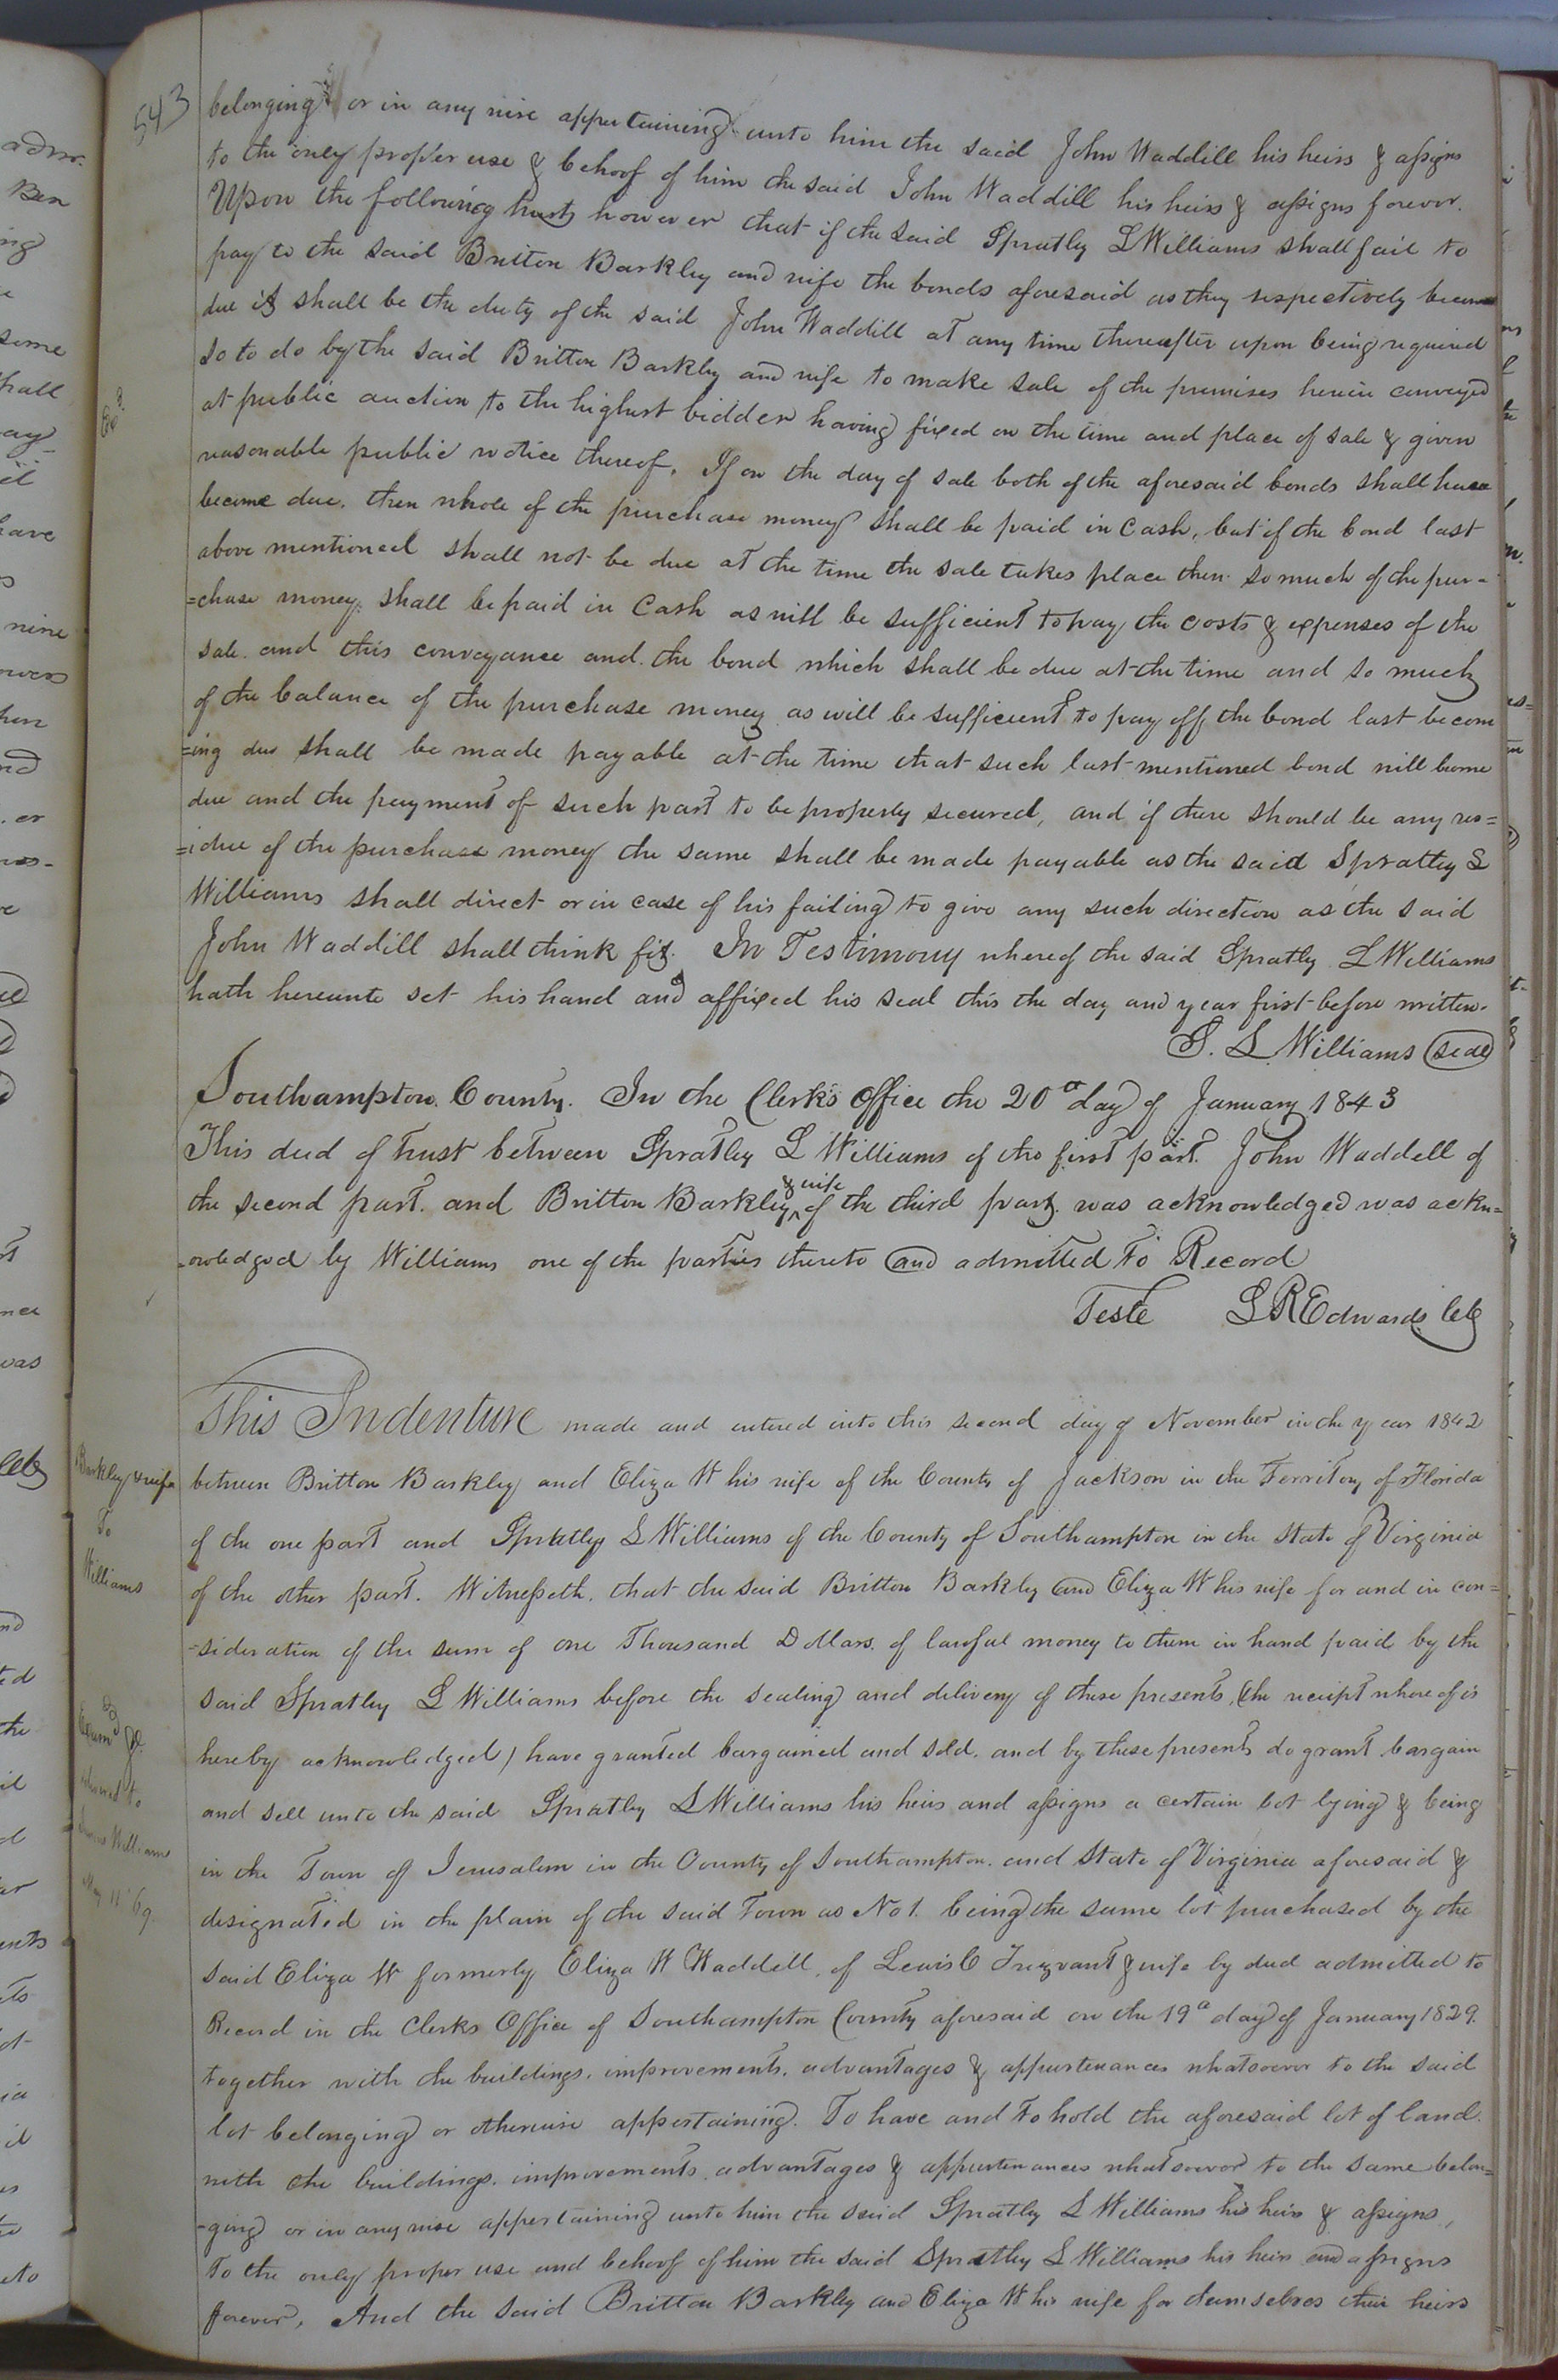 543
belonging or in any wise appertaining unto him the said John Waddill his heirs & assigns
to the only proper use & behoof of him the said John Waddill his heirs & assigns forever.
Upon the following trusts however that if the said Spratley L Williams shall fail to
pay to the said Britton Barkley and wife the bonds aforesaid as they respectively become
due it shall be the duty of the said John Waddill at any time thereafter upon being required
so to do by the said Britton Barkley and wife to make sale of the premises herein conveyed
at public auction to the highest bidder having fixed on the time and place of sale & given
reasonable public notice thereof. If on the day of sale both of the aforesaid bonds shall have
become due. then whole of the purchase money shall be paid in Cash, but if the bond last
above mentioned shall not be due at the time the sale takes place then so much of the pur-
=chase money shall be paid in Cash as will be sufficient to pay the costs & expenses of the
sale and this conveyance and the bond which shall be due at the time and so much
of the balance of the purchase money as will be sufficient to pay off the bond last becom
=ing due shall be made payable at the time that such last mentioned bond will become
due and the payment of such part to be properly secured, and if there should be any res=
=idue of the purchase money the same shall be made payable as the said Spratley L
Williams shall direct or in case of his failing to give any such direction as the said
John Waddill shall think fit. In Testimony whereof the said Spratley L Williams
hath hereunto set his hand and affixed his seal this the day and year first before written.
S. L Williams (seal)
Southampton County. In the Clerk's Office the 20th day of January 1843
This deed of trust between Spratley L Williams of the first part John Waddell of
the second part. and Britton Barkley & wife of the third part. was acknowledged was ackn=
=owledged by Williams one of the parties thereto and admitted to Record
Teste L R Edwards Clk
This Indenture made and entered into this second day of November in the year 1842
Barkley & wife
To
Williams
between Britton Barkley and Eliza W his wife of the County of Jackson in the Territory of Florida
of the one part and Spratley L Williams of the County of Southampton in the State of Virginia
of the other part. Witnesseth. that the said Britton Barkley and Eliza W his wife for and in con=
=sideration of the sum of one Thousand Dollars. of lawful money to them in hand paid by the
said Spratley L Williams before the sealing and delivery of these presents, (the receipt whereof is
hereby acknowledged) have granted bargained and sold. and by these presents do grant bargain
and sell unto the said Spratley L Williams his heirs and assigns a certain lot lying & being
in the Town of Jerusalem in the County of Southampton. and State of Virginia aforesaid &
designated in the plain of the said Town as No 1. being the same lot purchased by the
said Eliza W formerly Eliza W Waddell, of Lewis C Trezvant & wife by deed admitted to
Record in the Clerks Office of Southampton County aforesaid on the 19th day of January 1829.
together with the buildings. improvements. advantages & appurtenances whatsoever to the said
lot belonging or otherwise appertaining. To have and to hold the aforesaid lot of land.
with the buildings. improvements. advantages & appurtenances whatsoever to the same belon=
-ging or in any wise appertaining unto him the said Spratley L Williams his heirs & assigns,
To the only proper use and behoof of him the said Spratley L Williams his heirs and assigns
forever, And the said Britton Barkley and Eliza W his wife for themselves their heirs